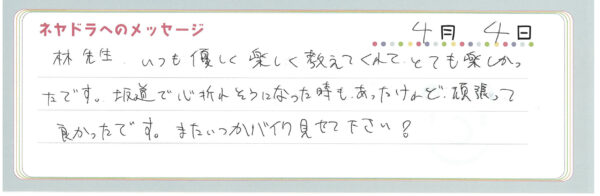 ネヤドラへのメッセージ
4月 4日
林先生、いつも優しく楽しく教えてくれて、とても楽しかっ
たです。坂道で心折れそうになった時も、あったけれど、頑張って
良かったです。またいつかバイク見せて下さい?